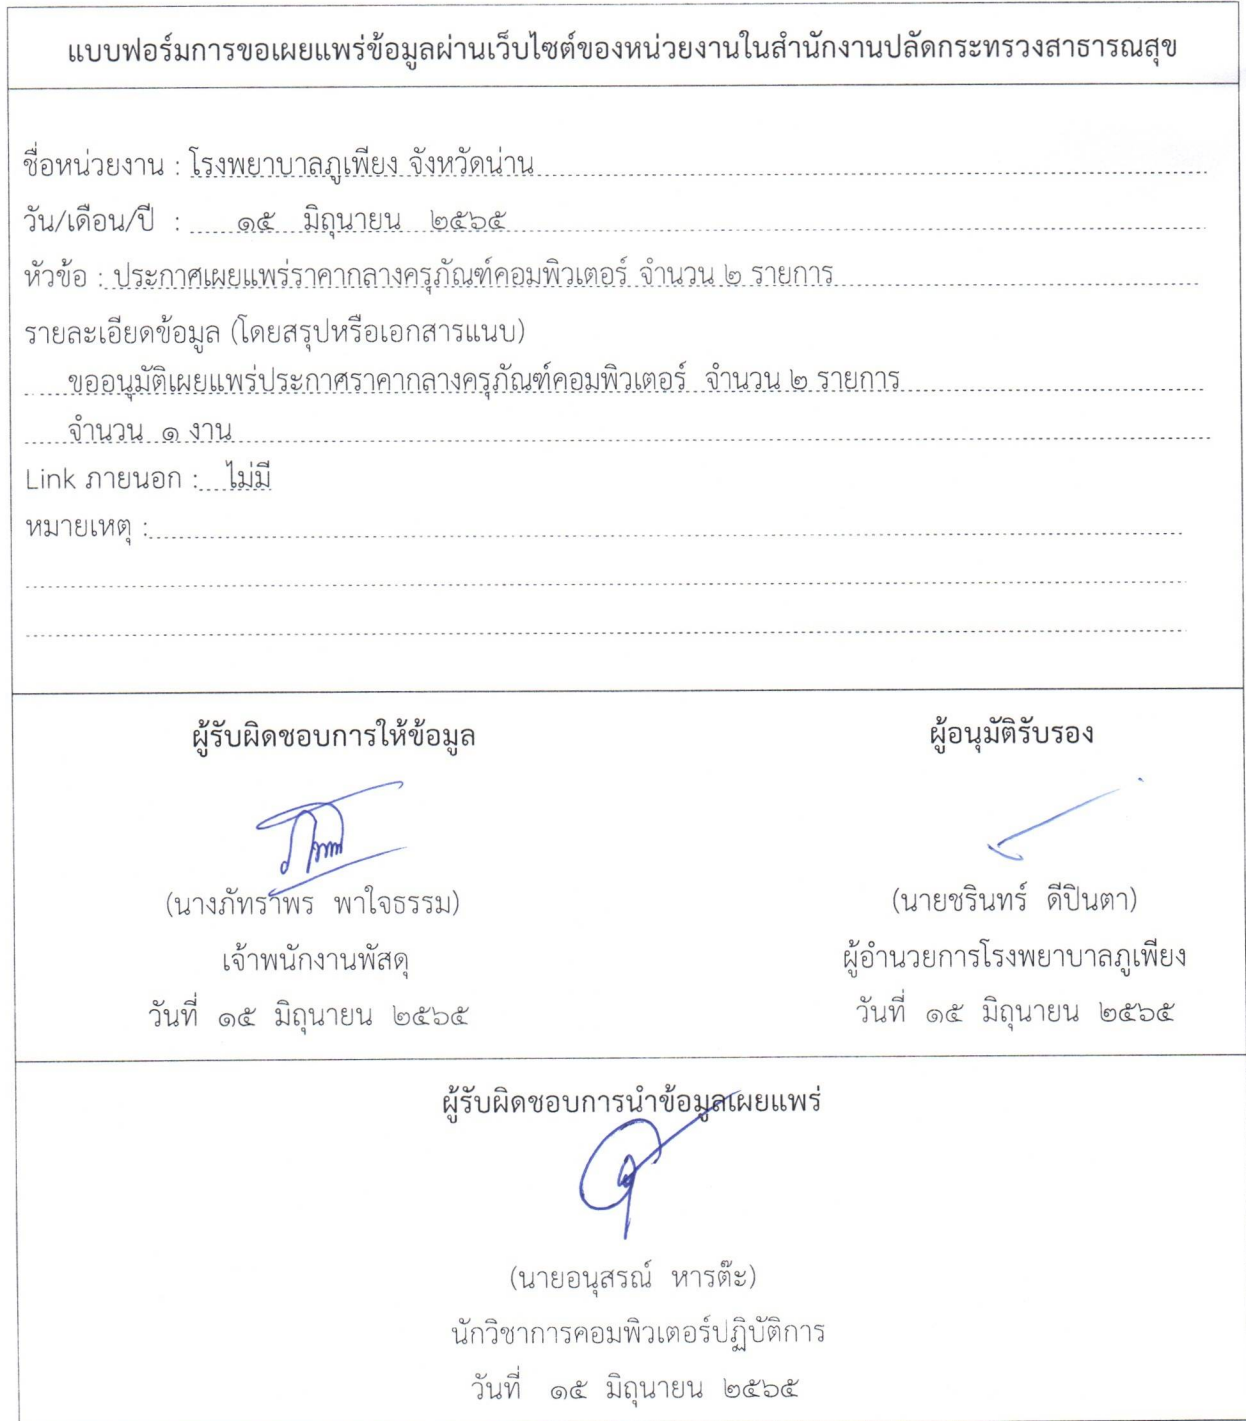 แบบฟอร์มการขอเผยแพร่ข้อมูลผ่านเว็บไซต์ของหน่วยงานในสำนักงานปลัดกระทรวงสาธารณสุข
ชื่อหน่วยงาน : โรงพยาบาลภูเพียง จังหวัดน่าน
วัน/เดือน/ปี : ๑๕ มิถุนายน ๒๕๖๕
หัวข้อ : ประกาศเผยแพร่ราคากลางครุภัณฑ์คอมพิวเตอร์ จำนวน ๒ รายการ
รายละเอียดข้อมูล (โดยสรุปหรือเอกสารแนบ)
ขออนุมัติเผยแพร่ประกาศราคากลางครุภัณฑ์คอมพิวเตอร์ จำนวน ๒ รายการ
จำนวน ๑ งาน
Link ภายนอก : ไม่มี
หมายเหตุ :
ผู้รับผิดชอบการให้ข้อมูล
(นางภัทราพร พาใจธรรม)
เจ้าพนักงานพัสดุ
วันที่ ๑๕ มิถุนายน ๒๕๖๕
ผู้อนุมัติรับรอง
(นายชรินทร์ ดีปินตา)
ผู้อำนวยการโรงพยาบาลภูเพียง
วันที่ ๑๕ มิถุนายน ๒๕๖๕
ผู้รับผิดชอบการนำข้อมูลเผยแพร่
(นายอนุสรณ์ หารต๊ะ)
นักวิชาการคอมพิวเตอร์ปฏิบัติการ
วันที่ ๑๕ มิถุนายน ๒๕๖๕